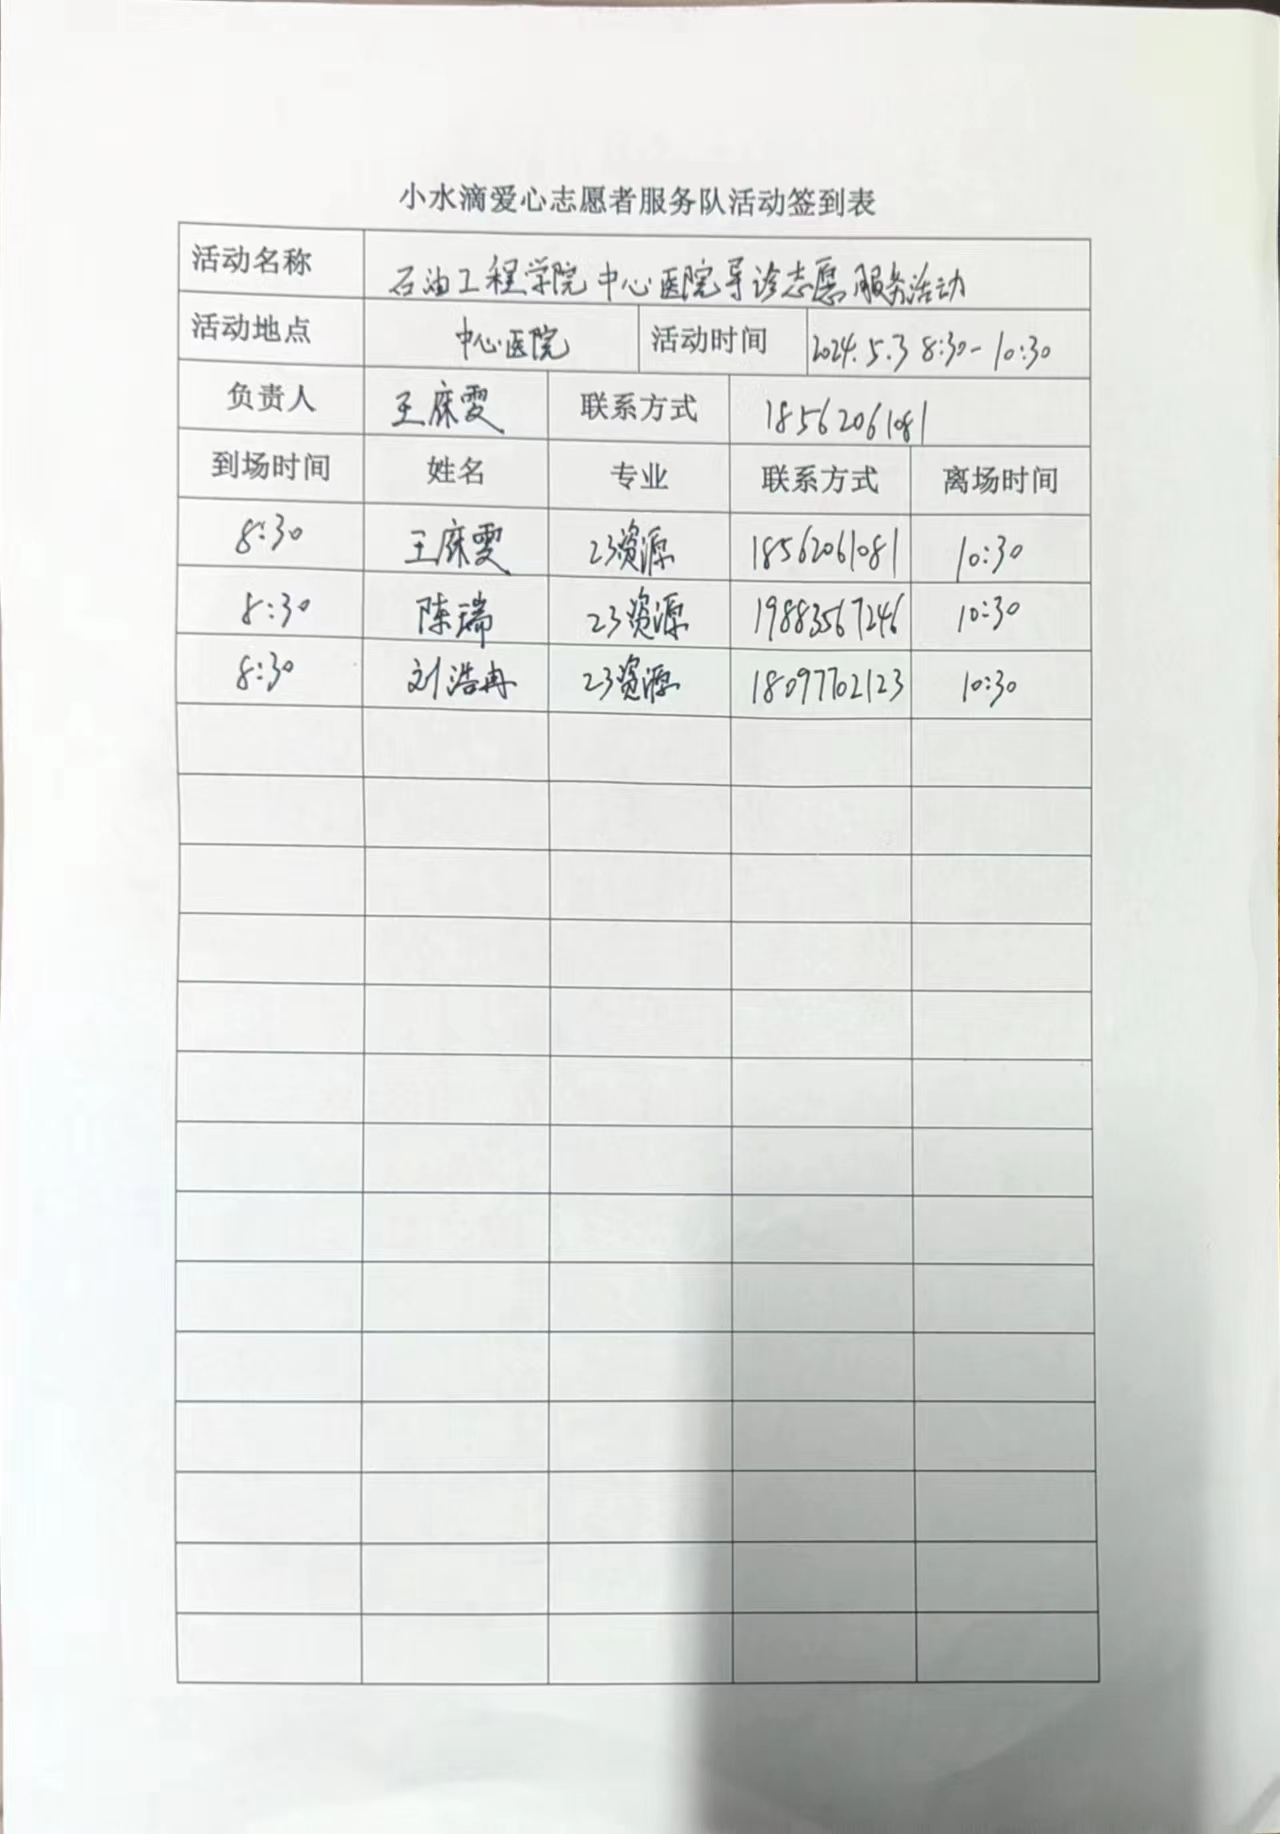 小水滴爱心志愿者服务队活动签到表
活动名称 石油工程学院中心医院导诊志愿服务活动
活动地点 中心医院 活动时间 2024.5.3 8:30-10:30
负责人 王麻雯 联系方式 18562061081
到场时间 姓名 专业 联系方式 离场时间
8:30 王麻雯 23资源 18562061081 10:30
8:30 陈瑞 23资源 19883567246 10:30
8:30 刘浩冉 23资源 18097702123 10:30